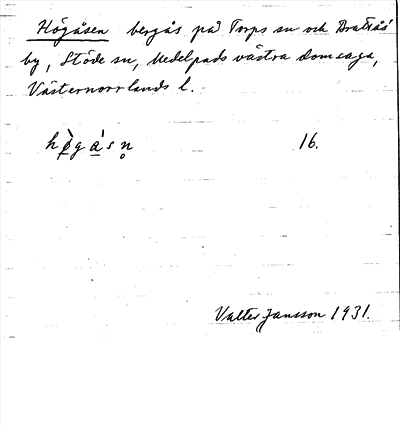 Högåsen bergås på Torps sn och Brattås
by, Stöde sn, Medelpads västra domsaga,
Västernorrlands l.
hø̀gåsn̥ 16.
Valter Jansson 1931.